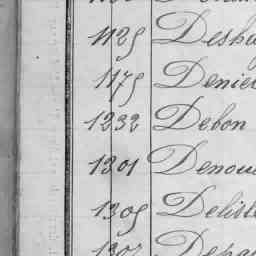 1125 Deshu
1175 Denie
1232 Debon
1301 Denou
1305 Delisle